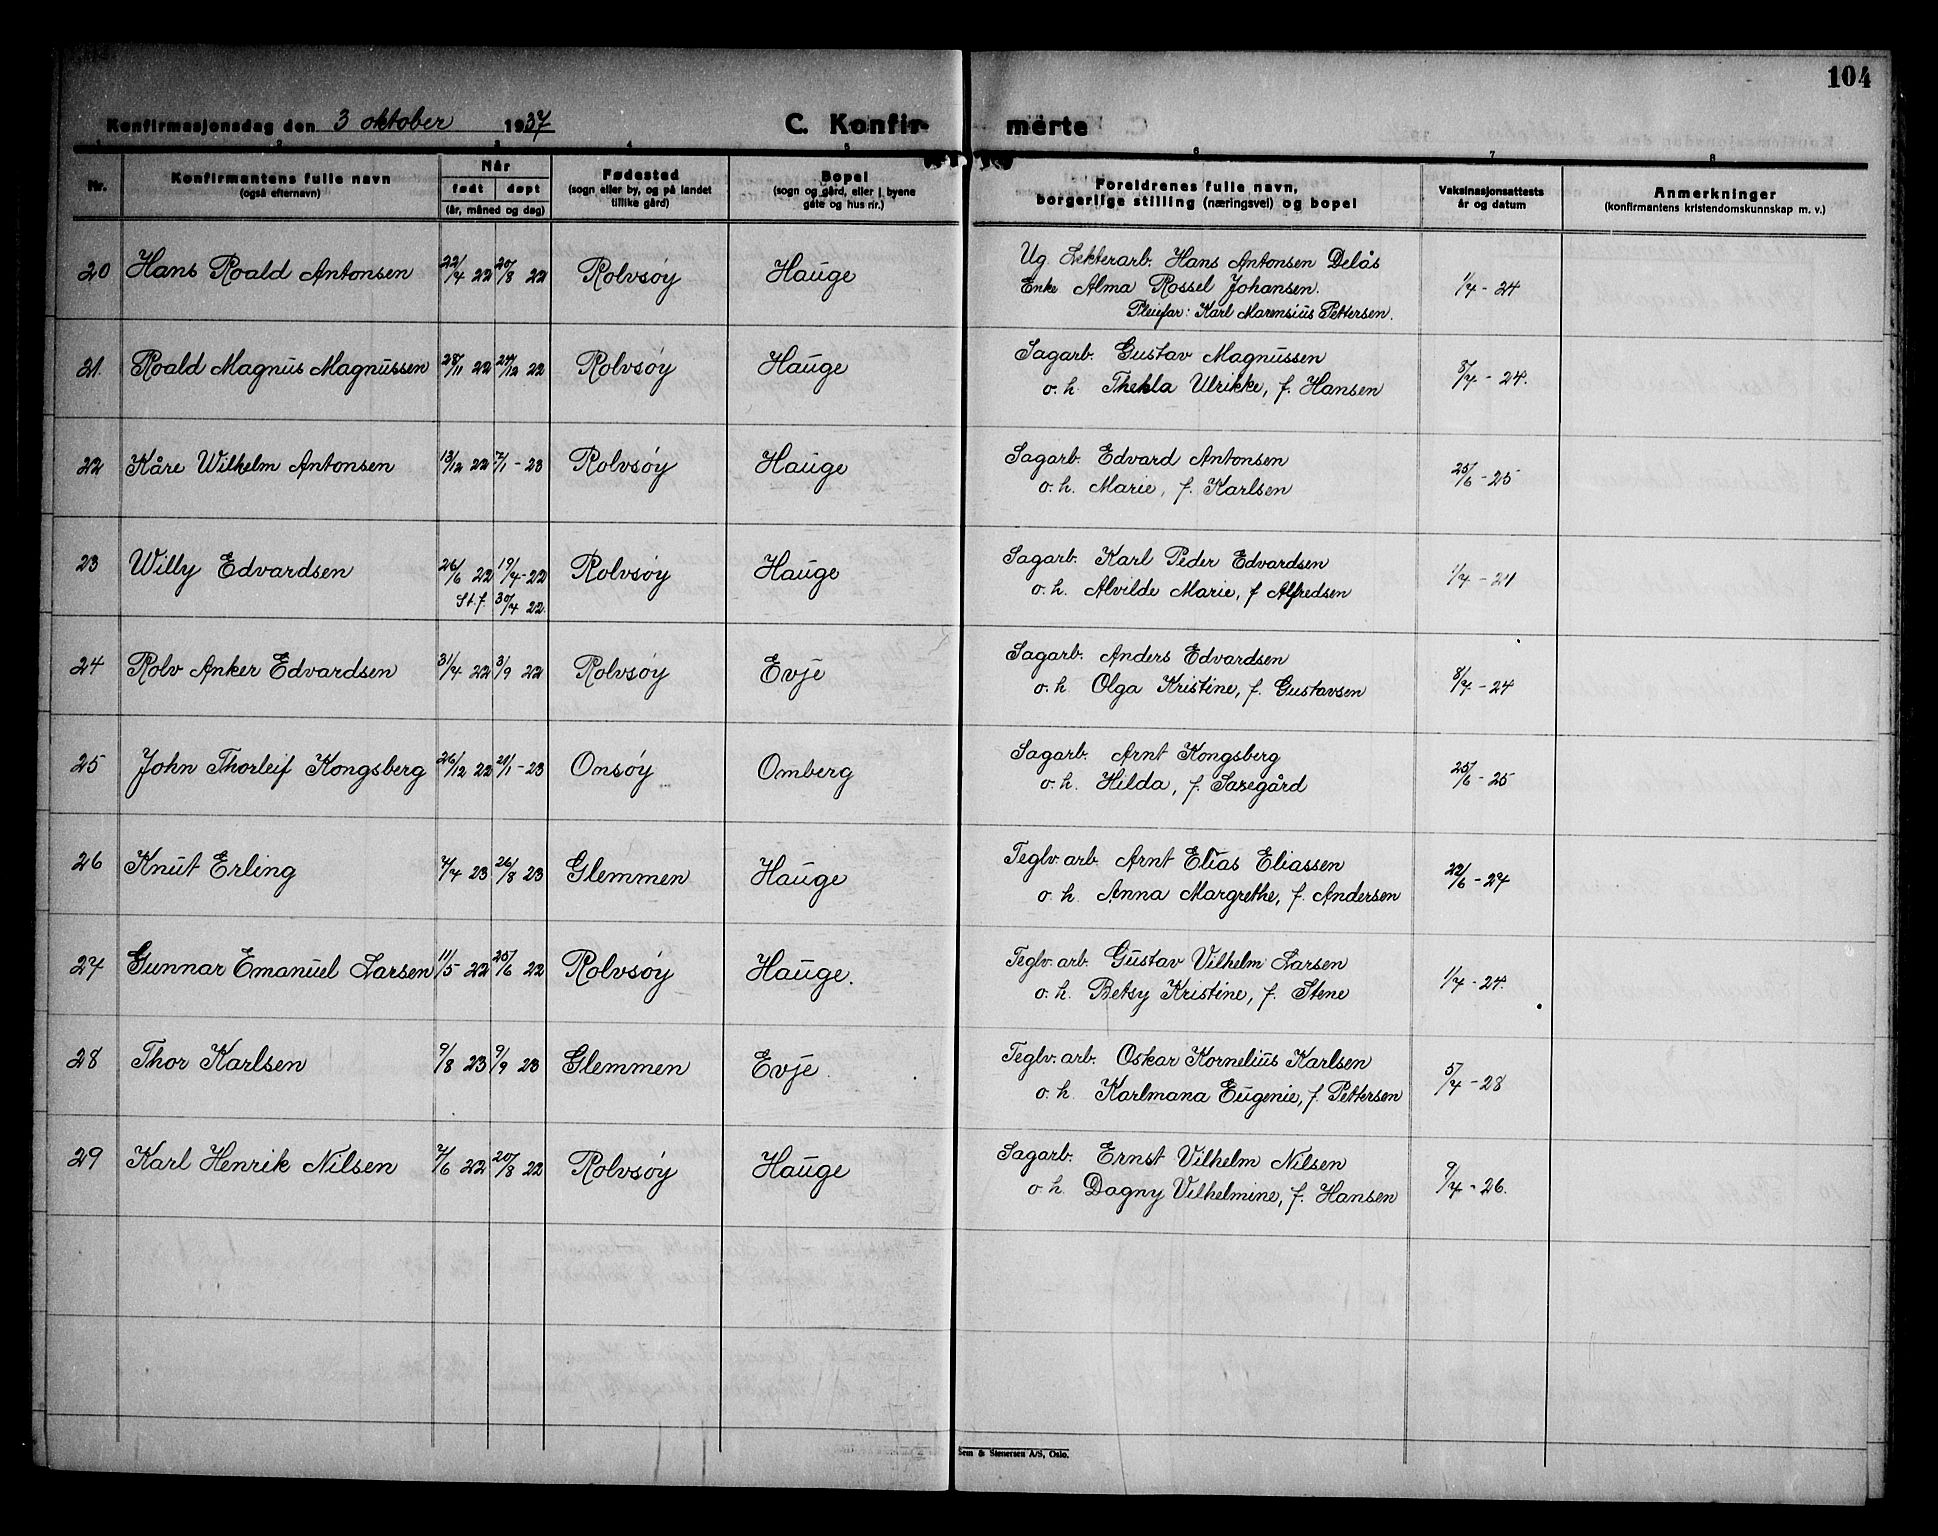 104
Konfirmasjonsdag den 3 oktober 1937 C. Konfirmerte
1 2 3 4 5 6 7 8
Nr. Konfirmantens fulle navn (også efternavn) Når født døpt (år, måned og dag) Fødested (sogn eller by, og på landet tillike gård) Bopel (sogn og gård, eller i byene gate og hus nr.) Foreldrenes fulle navn, borgerlige stilling (næringsvei) og bopel Vaksinasjonsattests år og datum Anmerkninger (konfirmantens kristendomskunnskap m. v.)
20 Hans Roald Antonsen 22/4 22 20/8 22 Rolvsøy Hauge Ug Lekterarb. Hans Antonsen Delås 1/7 - 24
Enke Alma Rossel Johansen.
Pleiefar: Karl Marensius Pettersen.
21. Roald Magnus Magnussen 28/11 22 24/12 22 Rolvsøy Hauge Sagarb. Gustav Magnussen 8/7 - 24.
o. h. Thekla Ulrikke, f. Hansen
22 Kåre Wilhelm Antonsen 13/12 22 7/1 - 23 Rolvsøy Hauge Sagarb. Edvard Antonsen 25/6 - 25
o. h. Marie, f. Karlsen
23 Willy Edvardsen 26/6 22 19/4 - 22 Rolvsøy Hauge Sagarb. Karl Peder Edvardsen 1/7 - 24
St. f. 30/4 22. o. h. Alvilde Marie, f Alfredsen
24 Rolv Anker Edvardsen 31/7 22 3/9 22 Rolvsøy Evje Sagarb. Anders Edvardsen 8/7 - 24
o. h Olga Kristine, f. Gustavsen
25 John Thorleif Kongsberg 26/12 22 21/1 - 23 Onsøy Omberg Sagarb. Arnt Kongsberg 25/6 - 25
o. h. Hilda, f.
26 Knut Erling 7/7 23 26/8 23 Glemmen Hauge Teglv. arb. Arnt Elias Eliassen 22/6 - 27
o. h. Anna Margrethe, f. Andersen
27 Gunnar Emanuel Larsen 11/5 22 25/6 22 Rolvsøy Hauge. Teglv. arb. Gustav Vilhelm Larsen 1/7 - 24.
o. h. Betsy Kristine, f. Stene
28 Thor Karlsen 9/8 23 9/9 23 Glemmen Evje Teglv. arb. Oskar Kornelius Karlsen 5/7 - 28
o. h. Karlmana Eugenie, f. Pettersen
29 Karl Henrik Nilsen 7/6 22 20/8 22 Rolvsøy Hauge Sagarb. Ernst Vilhelm Nilsen 9/7 - 26.
o h. Dagny Vilhelmine, f. Hansen
Sem & Stenersen A/S, Oslo.